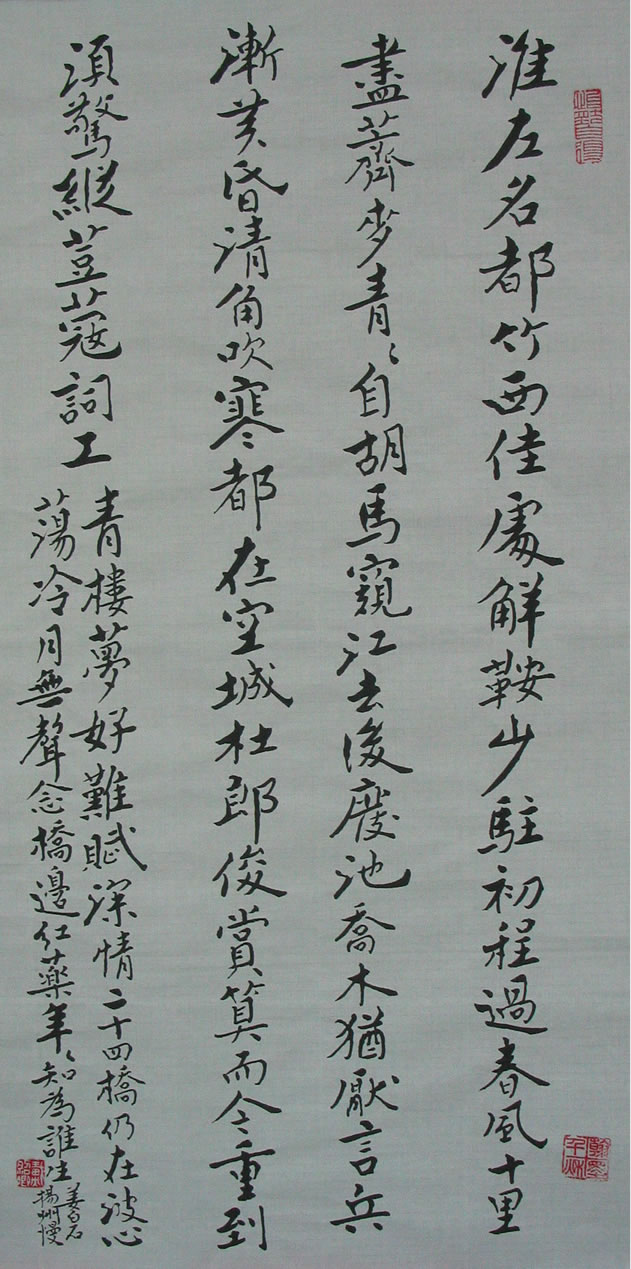 淮左名都竹西佳處解鞍少駐初程過春風十里
盡薺麥青〻自胡馬窺江去後廢池喬木猶厭言兵
漸黃昏清角吹寒都在空城杜郎俊賞算而今重到
須驚縱荳蔻詞工
青樓夢好難賦深情二十四橋仍在波心
蕩冷月無聲念橋邊紅藥年〻知為誰生
姜白石
揚州慢